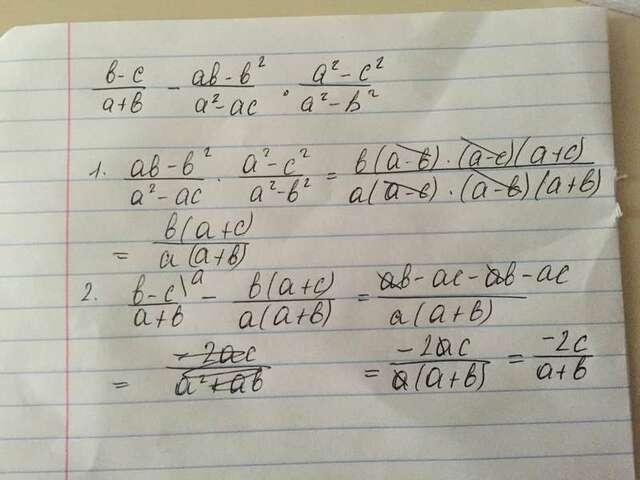 \frac{b-c}{a+b} - \frac{ab-b^2}{a^2-ac} \cdot \frac{a^2-c^2}{a^2-b^2}
1. \frac{ab-b^2}{a^2-ac} \cdot \frac{a^2-c^2}{a^2-b^2} = \frac{b(a-b) \cdot (a-c)(a+c)}{a(a-b) \cdot (a-b)(a+b)}
= \frac{b(a+c)}{a(a+b)}
2. \frac{b-c}{a+b}\backslash^{a} - \frac{b(a+c)}{a(a+b)} = \frac{ab-ac-ab-ac}{a(a+b)}
= \frac{-2ac}{a^2+ab} = \frac{-2ac}{a(a+b)} = \frac{-2c}{a+b}